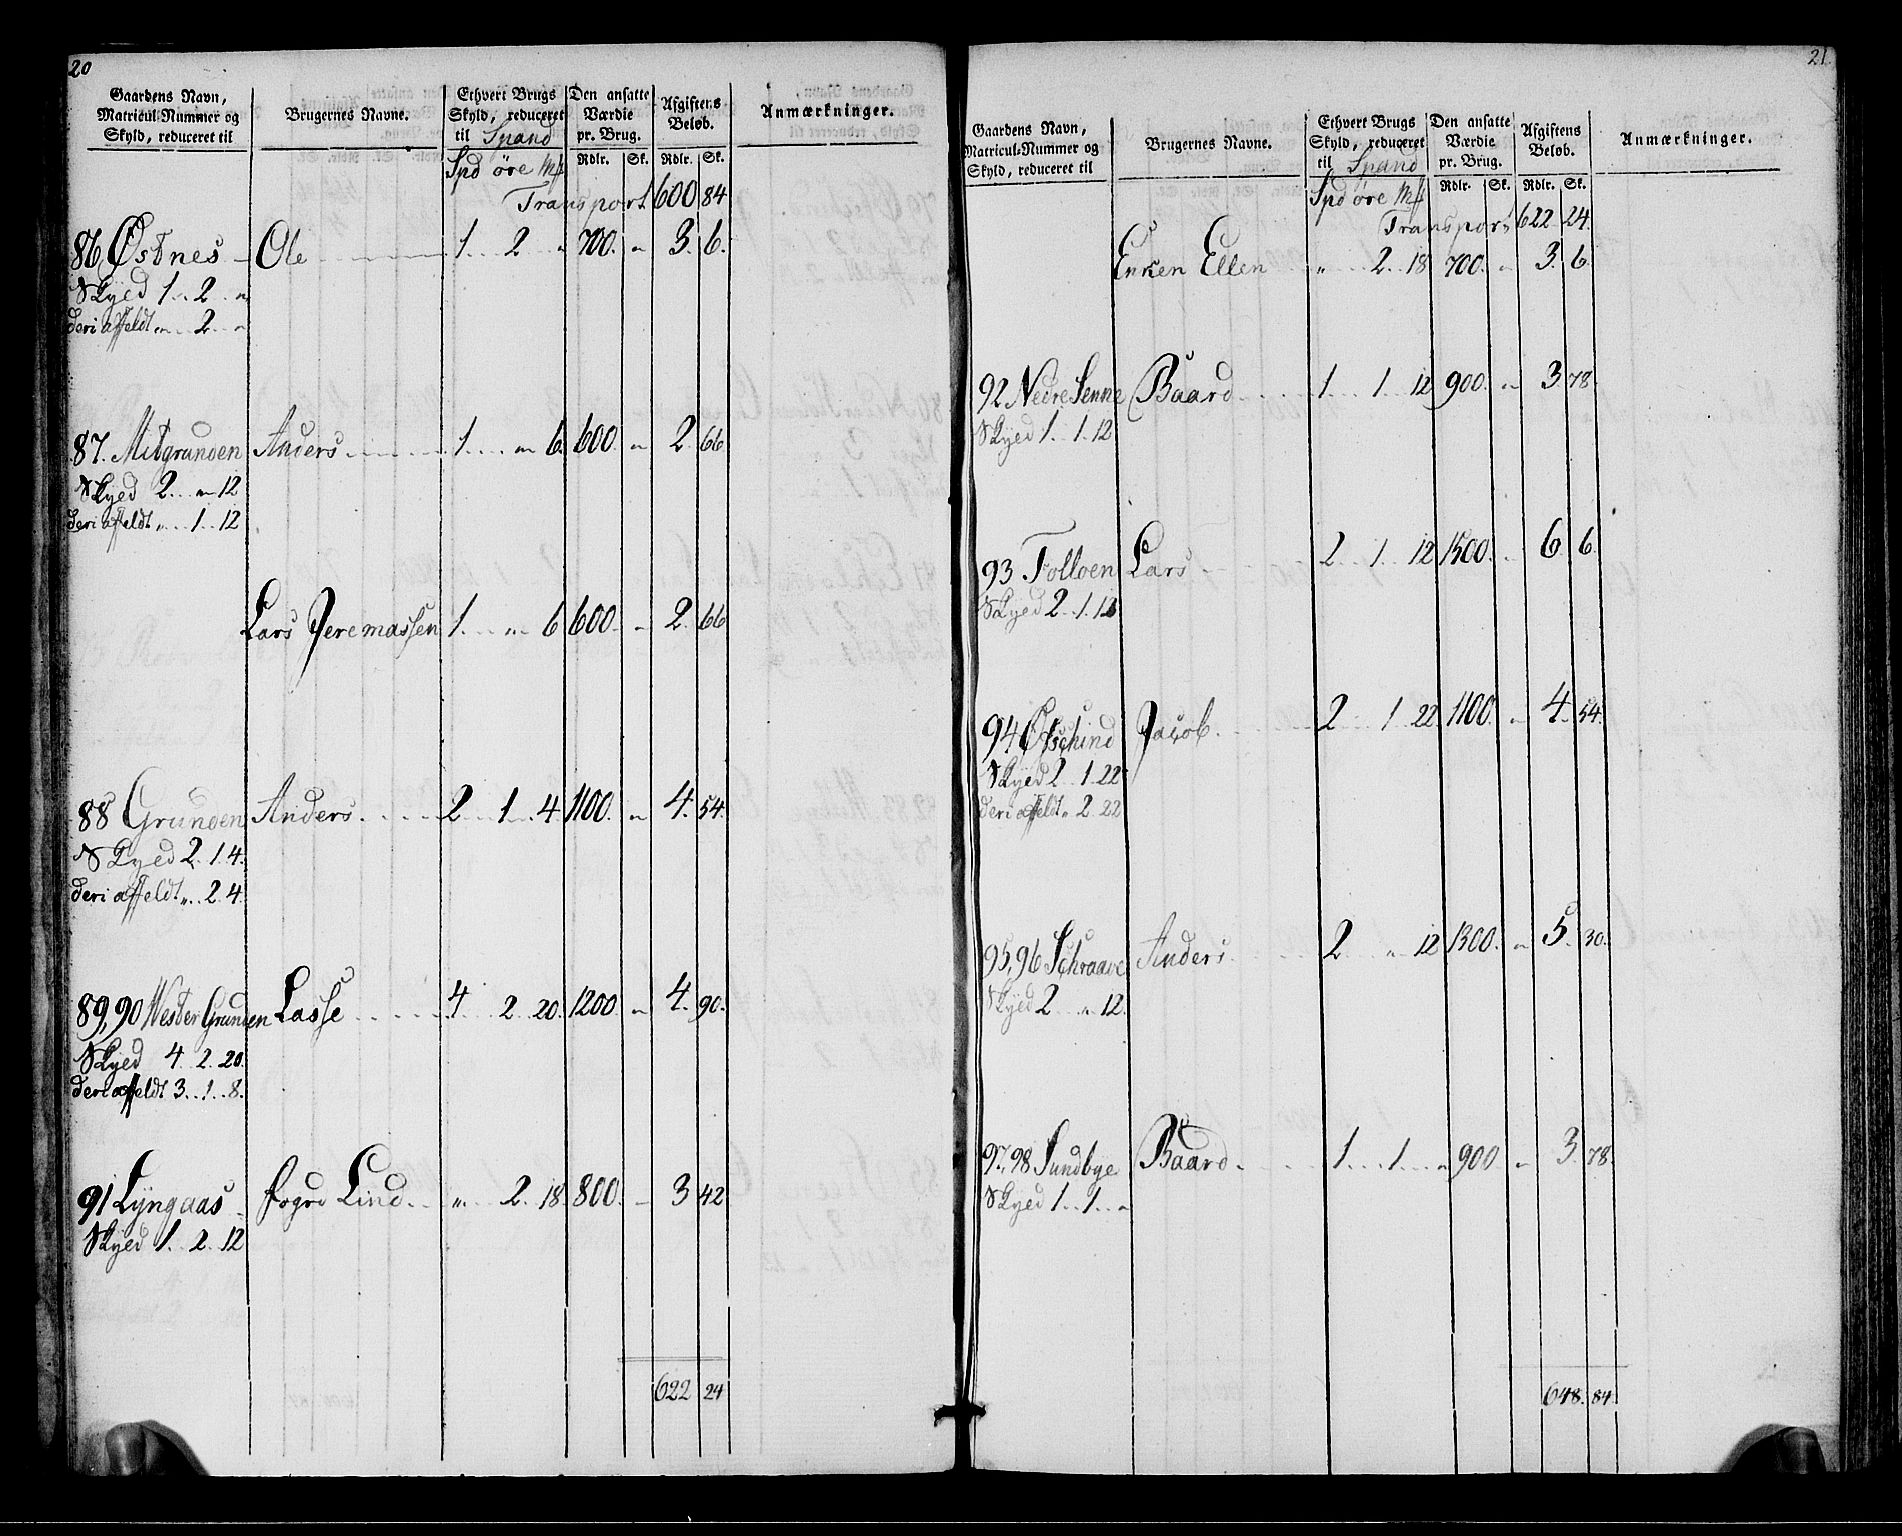 20
Gaardens Navn, Matricul-Nummer og Skyld, reduceret til | Brugernes Navne. | Ethvert Brugs Skyld, reduceret til Spand | Den ansatte Værdie pr. Brug. | Afgiftens Beløb. | Anmærkninger.
Spd øre Mk | Rdlr. Sk. | Rdlr. Sk.
Transport 600 84
86 Østnes Ole 1 2 " 700. " 3. 6.
Skyld 1 2 "
deri affeldt " 2 "
87. Mitgrunden Anders 1 " 6. 600. " 2. 66
Skyld 2 " 12
deri affeldt " 1 12
Lars Jeremassen 1 " 6 600. " 2. 66
88 Grunden Anders 2 1 4. 1100. " 4. 54.
Skyld 2. 1. 4.
deri affeldt " 2. 4.
89, 90 Westergrunden Lasse 4 2 20. 1200. " 4. 90.
Skyld 4 2 20.
deri affeldt 3 1 8.
91 Lyngaas Lind " 2. 18. 800. " 3 42
Skyld 1. 2. 12
622 24
21
Gaardens Navn, Matricul-Nummer og Skyld, reduceret til | Brugernes Navne. | Ethvert Brugs Skyld, reduceret til Spand | Den ansatte Værdie pr. Brug. | Afgiftens Beløb. | Anmærkninger.
Spd øre Mk | Rdlr. Sk. | Rdlr. Sk.
Transport 622 24.
Enken Ellen " 2. 18 700. " 3. 6.
92 Nedre Senne Baard 1 1 12 900. " 3 78.
Skyld 1. 1. 12
93 Folloen Lars 2 1 12 1500. " 6 6.
Skyld 2. 1. 12
94 Jacob 2 1 22 1100. " 4. 54.
Skyld 2 1. 22
deri affeldt " 2. 22
95, 96 Schraave Anders 2 " 12 1300. " 5. 30.
Skyld 2 " 12.
97, 98 Sundbye Baard 1 1 " 900 " 3. 78.
Skyld 1 1 "
648. 84.